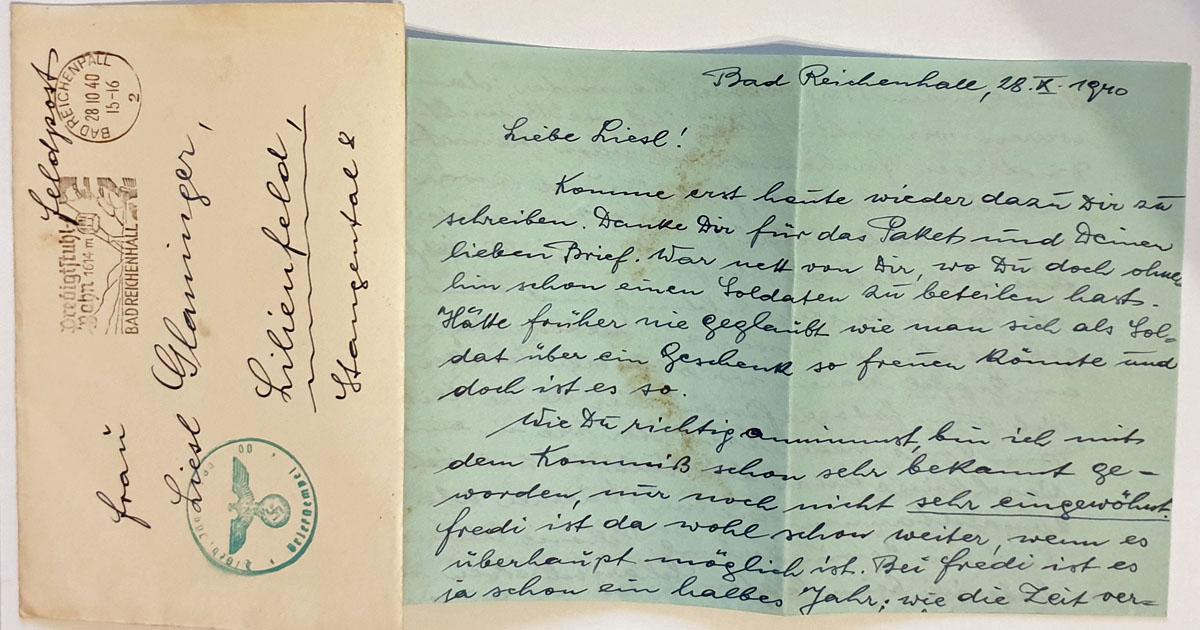 Feldpost
BAD REICHENHALL
28 10 40
15-16
2
Predigtstuhl-
Bahn 1614 m
BAD REICHENHALL
Frau
Liesl Glanninger,
Lilienfeld,
Stangental 8
Briefstempel
Bad Reichenhall, 28. X. 1940
Liebe Liesl!
Komme erst heute wieder dazu Dir zu
schreiben. Danke Dir für das Paket und Deinen
lieben Brief. War nett von Dir, wo Du doch ohne
hin schon einen Soldaten zu beteilen hast.
Hätte früher nie geglaubt wie man sich als Sol-
dat über ein Geschenk so freuen könnte und
doch ist es so.
Wie Du richtig annimmst, bin ich mit
dem Kommiß schon sehr bekannt ge-
worden, nur noch nicht sehr eingewöhnt.
Fredi ist da wohl schon weiter, wenn es
überhaupt möglich ist. Bei Fredi ist es
ja schon ein halbes Jahr; wie die Zeit ver-